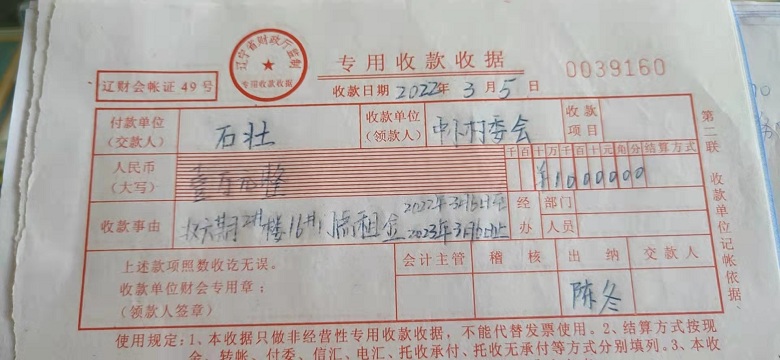 辽宁省财政厅监制
专用收款收据
专用收款收据
0039160
辽财会帐证49号
收款日期 2022年3月5日
付款单位
(交款人)
石壮
收款单位
(领款人)
村委会
收款
项目
人民币
(大写)
壹万元整
千百十万千百十元角分
结算方式
¥1000000
收款事由
租金
2022年3月
2023年3月
经办
部门
人员
上述款项照数收讫无误。
收款单位财会专用章:
(领款人签章)
会计主管
稽核
出纳
交款人
陈冬
第二联 收款单位记帐依据
使用规定:1、本收据只做非经营性专用收款收据,不能代替发票使用。2、结算方式按现
金、转帐、付委、信汇、电汇、托收承付、托收无承付等方式分别填列。3、本收